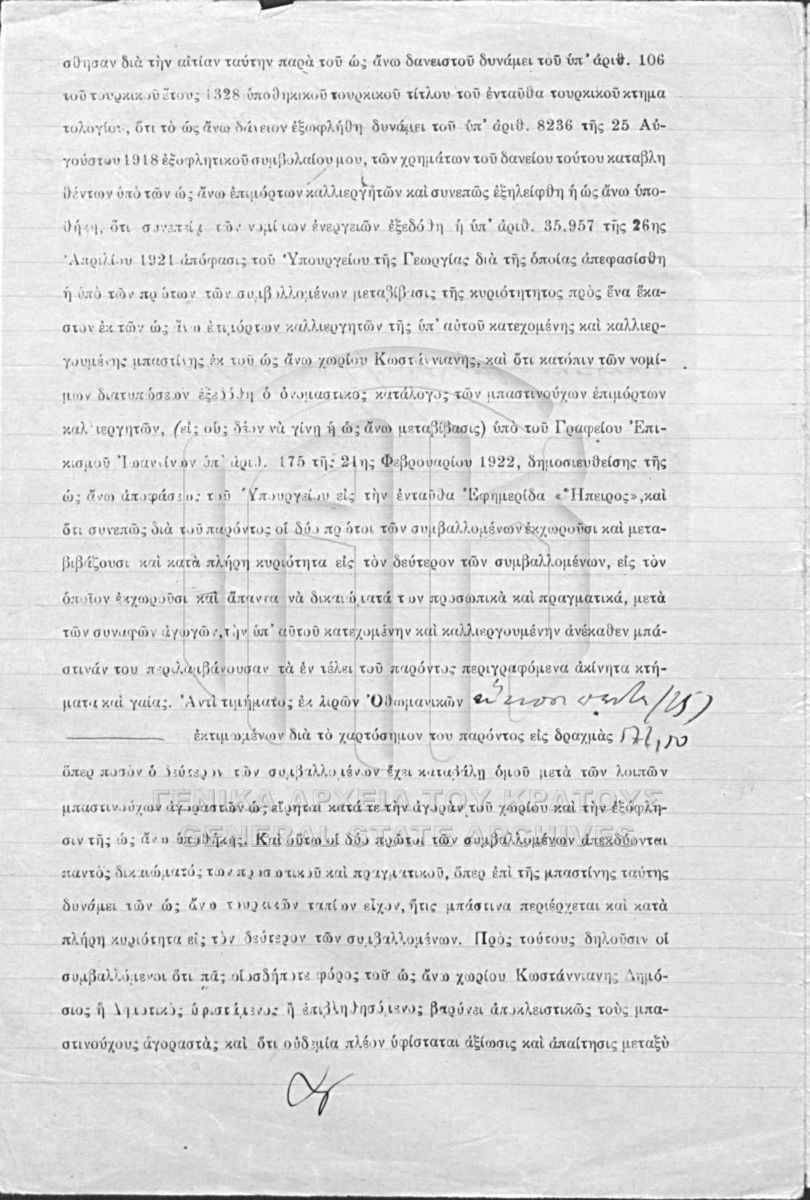 σθησαν διὰ τὴν αἰτίαν ταύτην παρὰ τοῦ ὡς ἄνω δανειστοῦ δυνάμει τοῦ ὑπ' ἀριθ. 106
τοῦ τουρκικοῦ ἔτους 1328 ὑποθηκικοῦ τουρκικοῦ τίτλου τοῦ ἐνταῦθα τουρκικοῦ κτημα
τολογίου, ὅτι τὸ ὡς ἄνω δάνειον ἐξωφλήθη δυνάμει τοῦ ὑπ' ἀριθ. 8236 τῆς 25 Αὐ-
γούστου 1918 ἐξοφλητικοῦ συμβολαίου μου, τῶν χρημάτων τοῦ δανείου τούτου καταβλη
θέντων ὑπὸ τῶν ὡς ἄνω ἐπιμόρτων καλλιεργητῶν καὶ συνεπῶς ἐξηλείφθη ἡ ὡς ἄνω ὑπο-
θήκη, ὅτι συνεπείᾳ τῶν νομίμων ἐνεργειῶν ἐξεδόθη ἡ ὑπ' ἀριθ. 35.957 τῆς 26ης
Ἀπριλίου 1921 ἀπόφασις τοῦ Ὑπουργείου τῆς Γεωργίας διὰ τῆς ὁποίας ἀπεφασίσθη
ἡ ὑπὸ τῶν πρώτων τῶν συμβολλομένων μεταβίβασις τῆς κυριότητητος πρὸς ἕνα ἕκα-
στον ἐκ τῶν ὡς ἄνω ἐπιμόρτων καλλιεργητῶν τῆς ὑπ' αὐτοῦ κατεχομένης καὶ καλλιερ-
γουμένης μπαστίνης ἐκ τοῦ ὡς ἄνω χωρίου Κωστάννιανης, καὶ ὅτι κατόπιν τῶν νομί-
μων διατυπώσεων ἐξεδόθη ὁ ὀνομαστικὸς κατάλογος τῶν μπαστινούχων ἐπιμόρτων
καλλιεργητῶν, (εἰς οὓς δέον νὰ γίνῃ ἡ ὡς ἄνω μεταβίβασις) ὑπὸ τοῦ Γραφείου Ἐπι-
κισμοῦ Ἰωαννίνων ὑπ' ἀριθ. 175 τῆς 21ης Φεβρουαρίου 1922, δημοσιευθείσης τῆς
ὡς ἄνω ἀποφάσεως τοῦ Ὑπουργείου εἰς τὴν ἐνταῦθα Ἐφημερίδα «Ἤπειρος», καὶ
ὅτι συνεπῶς διὰ τοῦ παρόντος οἱ δύο πρῶτοι τῶν συμβαλλομένων ἐκχωροῦσι καὶ μετα-
βιβάζουσι καὶ κατὰ πλήρη κυριότητα εἰς τὸν δεύτερον τῶν συμβαλλομένων, εἰς τὸν
ὁποῖον ἐκχωροῦσι καὶ ἅπαντα νὰ δικαιώματά των προσωπικὰ καὶ πραγματικά, μετὰ
τῶν συναφῶν ἀγωγῶν, τὴν ὑπ' αὐτοῦ κατεχομένην καὶ καλλιεργουμένην ἀνέκαθεν μπά-
στινάν του περιλαμβάνουσαν τὰ ἐν τέλει τοῦ παρόντος περιγραφόμενα ἀκίνητα κτή-
ματα καὶ γαίας. Ἀντὶ τιμήματος ἐκ λιρῶν Ὀθωμανικῶν εἴκοσι πέντε (25)
ἐκτιμωμένων διὰ τὸ χαρτόσημον του παρόντος εἰς δραχμὰς
ὅπερ ποσὸν ὁ δεύτερον τῶν συμβαλλομένων ἔχει καταβάλῃ ὁμοῦ μετὰ τῶν λοιπῶν
μπαστινούχων ἀγοραστῶν ὡς εἴρηται κατά τε τὴν ἀγορὰν τοῦ χωρίου καὶ τὴν ἐξόφλη-
σιν τῆς ὡς ἄνω ὑποθήκης. Καὶ οὕτω οἱ δύο πρῶτοι τῶν συμβαλλομένων ἀπεκδύονται
παντὸς δικαιώματός των προσωπικοῦ καὶ πραγματικοῦ, ὅπερ ἐπὶ τῆς μπαστίνης ταύτης
δυνάμει τῶν ὡς ἄνω τουρκικῶν ταπίων εἶχον, ἥτις μπάστινα περιέρχεται καὶ κατὰ
πλήρη κυριότητα εἰς τὸν δεύτερον τῶν συμβαλλομένων. Πρὸς τούτους δηλοῦσιν οἱ
συμβαλλόμενοι ὅτι πᾶς οἱοσδήποτε φόρος τοῦ ὡς ἄνω χωρίου Κωστάννιανης Δημό-
σιος ἢ Δημοτικὸς ὑφιστάμενος ἢ ἐπιβληθησόμενος βαρύνει ἀποκλειστικῶς τοὺς μπα-
στινούχους ἀγοραστὰς καὶ ὅτι οὐδεμία πλέον ὑφίσταται ἀξίωσις καὶ ἀπαίτησις μεταξὺ
ΓΕΝΙΚΑ ΑΡΧΕΙΑ ΤΟΥ ΚΡΑΤΟΥΣ
GENERAL STATE ARCHIVES